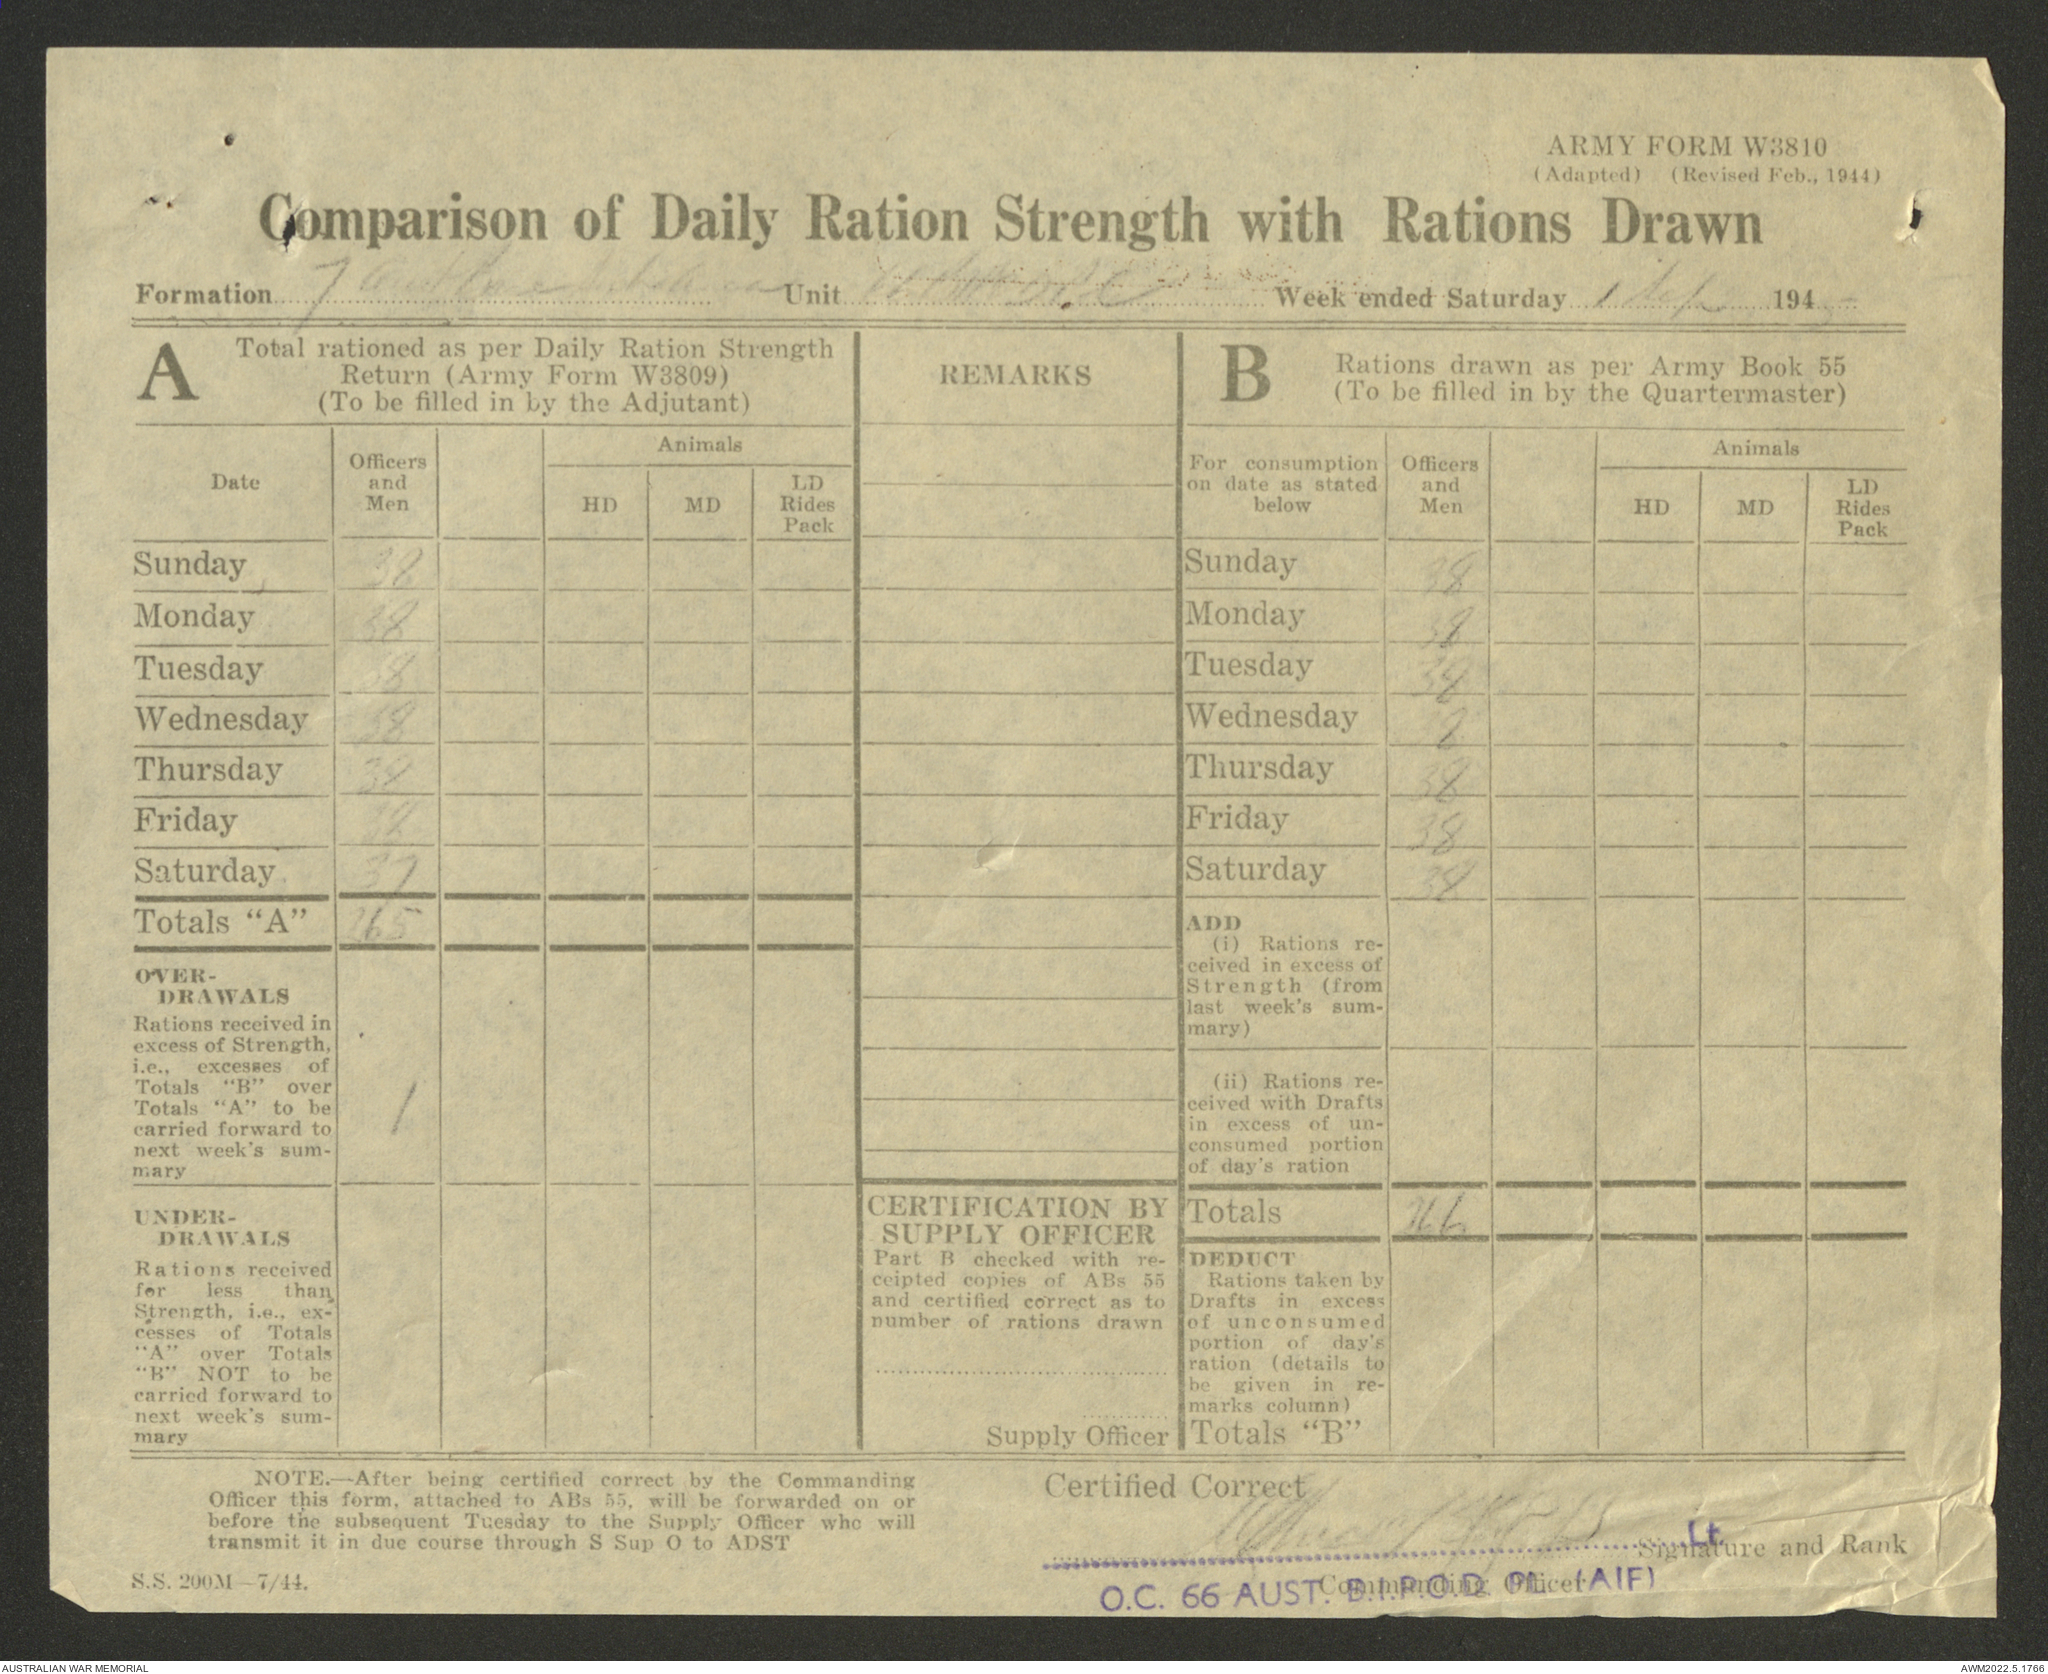 ARMY FORM W3810
(Adapted) (Revised Feb., 1944)
Comparison of Daily Ration Strength with Rations Drawn
Formation 7 Unit Week ended Saturday 1 Sep 194
A Total rationed as per Daily Ration Strength
Return (Army Form W3809)
(To be filled in by the Adjutant)
REMARKS
B Rations drawn as per Army Book 55
(To be filled in by the Quartermaster)
Date
Officers
and
Men
Animals
HD
MD
LD
Rides
Pack
For consumption
on date as stated
below
Officers
and
Men
Animals
HD
MD
LD
Rides
Pack
Sunday 38
Monday 38
Tuesday 38
Wednesday 38
Thursday 38
Friday 38
Saturday 37
Totals "A" 265
OVER-
DRAWALS
Rations received in
excess of Strength,
i.e., excesses of
Totals "B" over
Totals "A" to be
carried forward to
next week's sum-
mary
1
UNDER-
DRAWALS
Rations received
for less than
Strength, i.e., ex-
cesses of Totals
"A" over Totals
"B" NOT to be
carried forward to
next week's sum-
mary
CERTIFICATION BY
SUPPLY OFFICER
Part B checked with re-
ceipted copies of ABs 55
and certified correct as to
number of rations drawn
Supply Officer
Sunday 38
Monday 38
Tuesday 38
Wednesday 38
Thursday 38
Friday 38
Saturday 38
ADD
(i) Rations re-
ceived in excess of
Strength (from
last week's sum-
mary)
(ii) Rations re-
ceived with Drafts
in excess of un-
consumed portion
of day's ration
Totals 266
DEDUCT
Rations taken by
Drafts in excess
of unconsumed
portion of day's
ration (details to
be given in re-
marks column)
Totals "B"
NOTE.—After being certified correct by the Commanding
Officer this form, attached to ABs 55, will be forwarded on or
before the subsequent Tuesday to the Supply Officer who will
transmit it in due course through S Sup O to ADST
S.S. 200M—7/44.
Certified Correct
Lt.
Signature and Rank
Commanding Officer
O.C. 66 AUST. B.I.P.O.D. PL. (AIF)
AUSTRALIAN WAR MEMORIAL
AWM2022.5.1766